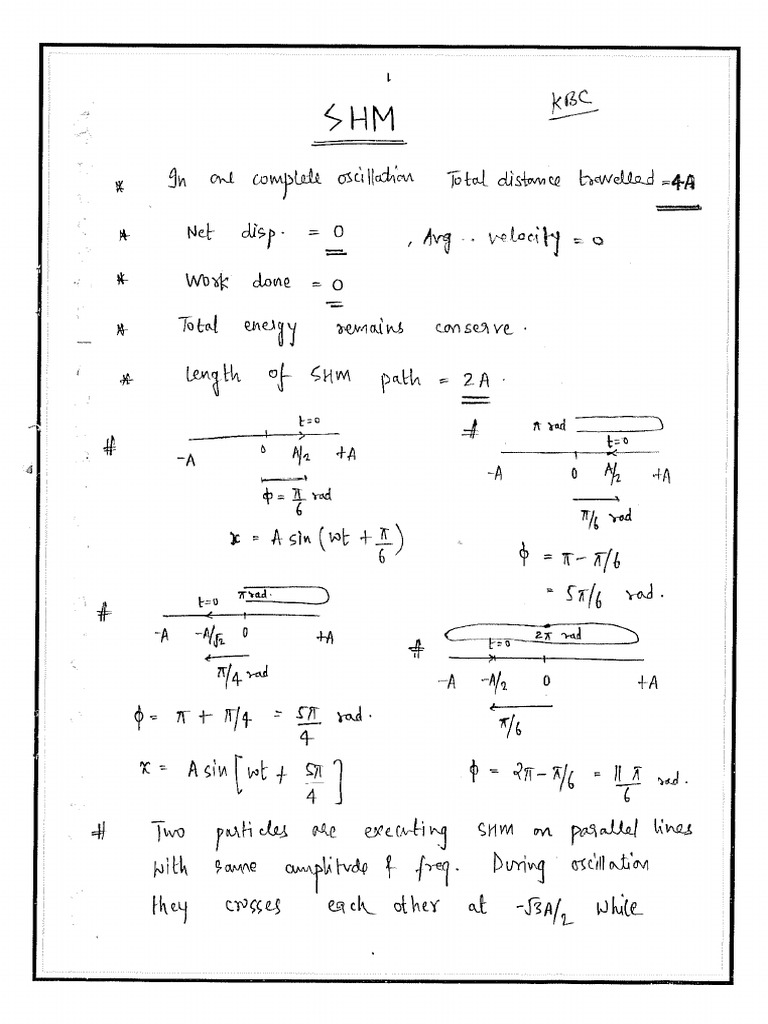 1
SHM
KBC
* In one complete oscillation Total distance travelled = 4A
* Net disp. = 0 , Avg.. velocity = 0
* Work done = 0
* Total energy remains conserve.
* Length of SHM path = 2A.
# t=0
-A 0 A/2 +A
ϕ = π/6 rad
x = A sin(wt + π/6)
# π rad
t=0
-A 0 A/2 +A
π/6 rad
ϕ = π - π/6
= 5π/6 rad.
# t=0 π rad.
-A -A/√2 0 +A
π/4 rad
ϕ = π + π/4 = 5π/4 rad.
x = A sin[wt + 5π/4]
# 2π rad
t=0
-A -A/2 0 +A
π/6
ϕ = 2π - π/6 = 11π/6 rad.
# Two particles are executing SHM on parallel lines
with same amplitude & freq. During oscillation
they crosses each other at -√3A/2 while